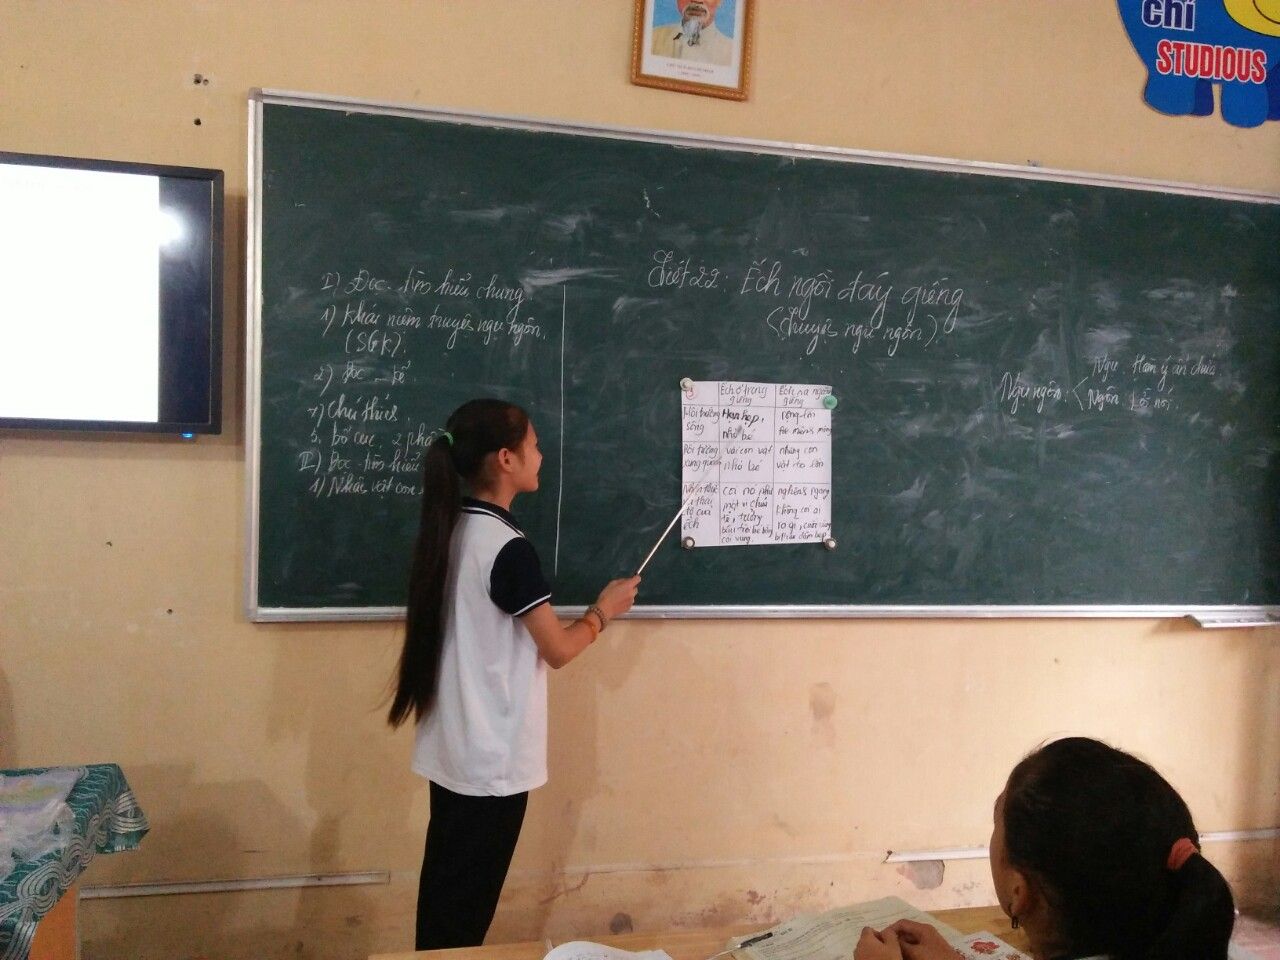 chí
STUDIOUS
Tiết 22: Ếch ngồi đáy giếng
(Truyện ngụ ngôn)
I) Đọc - tìm hiểu chung
1) Khái niệm truyện ngụ ngôn.
(SGK).
2) Đọc - kể
Chú thích
bố cục. 2 phầ
II) Đọc - tìm hiểu
1) Nhân vật con
Ếch ở trong giếng
Ếch ra ngoài giếng
Môi trường sống
Hạn hẹp, nhỏ bé
rộng lớn
Đối tượng xung quanh
vài con vật nhỏ bé
những con vật to lớn
Nhận thức thái độ của ếch
coi nó như một vị chúa tể, tưởng bầu trời bé bằng cái vung.
nghênh ngang không coi ai ra gì, cuối cùng bị trâu dẫm bẹp
Ngụ ngôn:
Ngụ: Hàm ý ẩn chứa
Ngôn: Lời nói